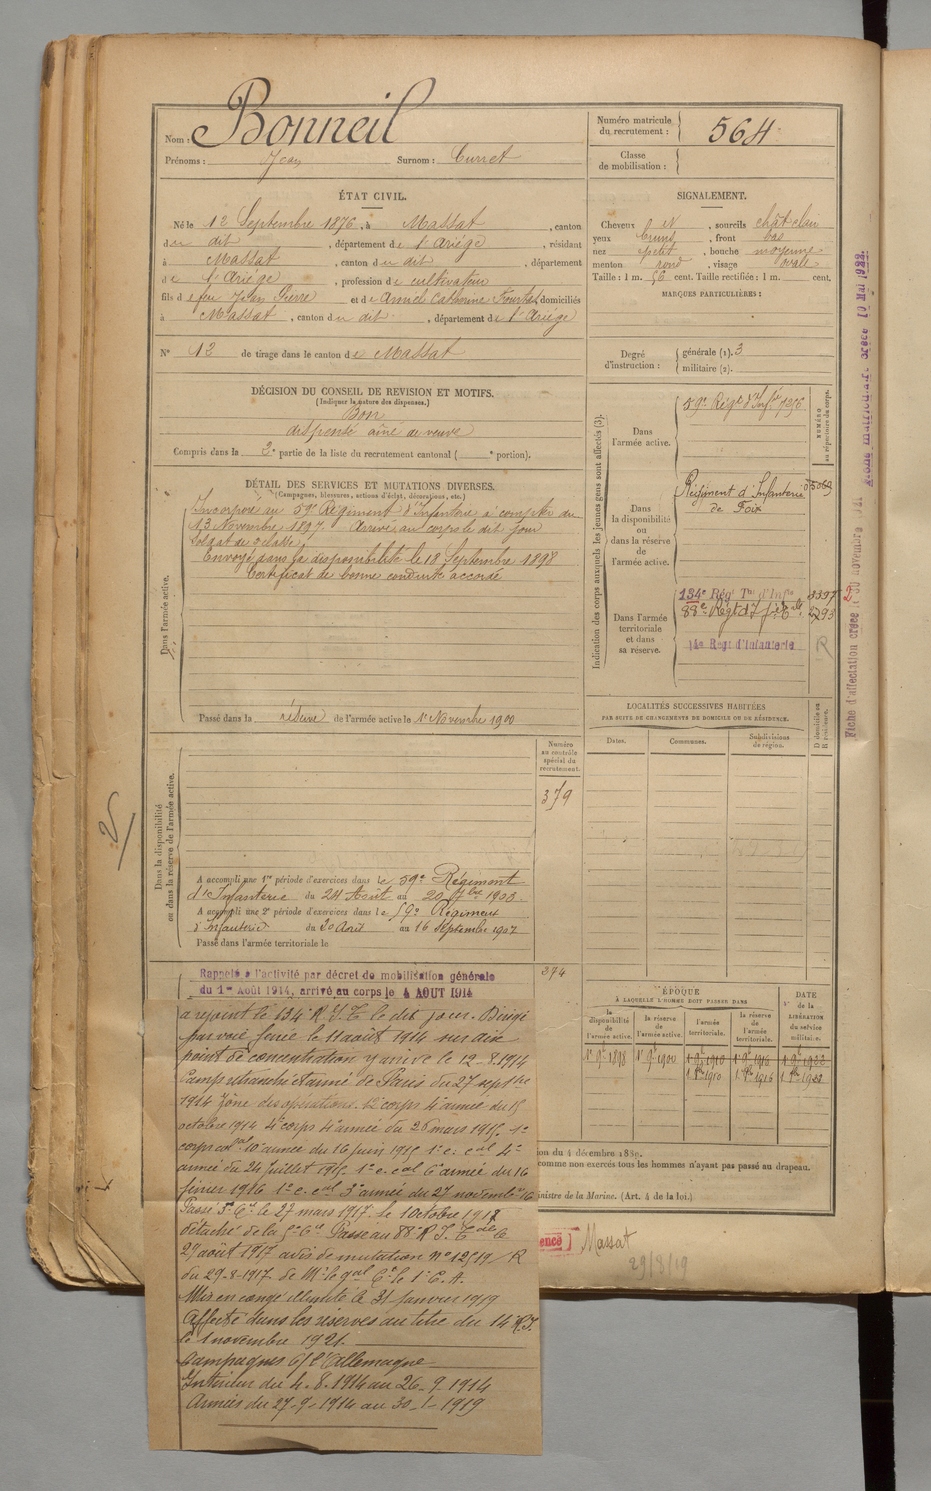 Nom : Bonneil
Prénoms : Jean Surnom : Curret
Numéro matricule du recrutement : 564
Classe de mobilisation :
ÉTAT CIVIL.
Né le 12 Septembre 1876, à Massat, canton
du dit, département de l'Ariége, résidant
à Massat, canton du dit, département
de l'Ariége, profession de cultivateur
fils de feu Jean Pierre et de Amiel Catherine Fourtet, domiciliés
à Massat, canton du dit, département de l'Ariége
N° 12 de tirage dans le canton de Massat
SIGNALEMENT.
Cheveux N, sourcils chât clair
yeux bruns, front bas
nez petit, bouche moyenne
menton rond, visage ovale
Taille : 1 m. 56 cent. Taille rectifiée : 1 m. cent.
MARQUES PARTICULIÈRES :
Degré d'instruction : générale (1). 3
militaire (2).
DÉCISION DU CONSEIL DE REVISION ET MOTIFS.
(Indiquer la nature des dispenses.)
Bon
dispensé aîné de veuve
Compris dans la 2e partie de la liste du recrutement cantonal ( e portion).
DÉTAIL DES SERVICES ET MUTATIONS DIVERSES.
(Campagnes, blessures, actions d'éclat, décorations, etc.)
Dans l'armée active.
Incorporé au 59e Régiment d'Infanterie à compter du
13 Novembre 1897. Arrivé au corps le dit jour
Soldat de 2e classe.
Envoyé dans la disponibilité le 18 Septembre 1898
Certificat de bonne conduite accordé
Passé dans la réserve de l'armée active le 1er Novembre 1900
Indication des corps auxquels les jeunes gens sont affectés (3).
NUMÉRO au répertoire du corps.
Dans l'armée active.
59e Régt d'Infie 7276
Dans la disponibilité ou dans la réserve de l'armée active.
Régiment d'Infanterie
de Foix
Dans l'armée territoriale et dans sa réserve.
134e Régt Tal d'Infie
88e Régt d'I
14e Regt d'Infanterie
R
Fiche d'affectation créée le 30 novembre 1921
LOCALITÉS SUCCESSIVES HABITÉES
PAR SUITE DE CHANGEMENTS DE DOMICILE OU DE RÉSIDENCE.
Dates. Communes. Subdivisions de région. D domicile ou R résidence.
Dans la disponibilité ou dans la réserve de l'armée active.
Numéro au contrôle spécial du recrutement.
379
A accompli une 1re période d'exercices dans le 59e Régiment
d'Infanterie du 24 Août au 20 7bre 1903.
A accompli une 2e période d'exercices dans le 59e Régiment
d'Infanterie du 20 Août au 16 Septembre 1907
Passé dans l'armée territoriale le
374
Rappelé à l'activité par décret de mobilisation générale
du 1er Août 1914, arrivé au corps le 4 AOUT 1914
a rejoint le 134e R.I.T. le dit jour. Dirigé
par voie ferrée le 11 août 1914 sur dire
point de concentration y arrive le 12-8-1914
Camp retranché armée de Paris du 27 septbre
1914 Zône des opérations. 12e corps 4e armée du 15
octobre 1914 4e corps 4e armée du 26 mars 1915. 1e
corps cal 10e armée du 16 juin 1915 1e c. cal 4e
armée du 24 juillet 1915 1e c. cal 6e armée du 16
février 1916 1e c. cal 3e armée du 27 novembre 16
Passé 5e Cie le 27 mars 1917 le 1 octobre 1917
détaché de la 5e Cie Passé au 88e R.I.T
29 août 1917 avis de mutation N° 12519/R
du 29-8-1917 de Mr le gal
Mis en congé illimité le 31 janvier 1919
Affecté dans les réserves au titre du 14e R.I.
le 1 novembre 1921.
Campagnes C/ l'Allemagne
Intérieur du 4-8-1914 au 26-9-1914
Armées du 27-9-1914 au 30-1-1919
ÉPOQUE
À LAQUELLE L'HOMME DOIT PASSER DANS
la disponibilité de l'armée active. la réserve de l'armée active. l'armée territoriale. la réserve de l'armée territoriale.
DATE de la LIBÉRATION du service militaire.
1er 9e 1898 1er 9e 1900 1er 9e 1910 1er 9e 1916 1er 9e 1922
on du 4 décembre 1889.
comme non exercés tous les hommes n'ayant pas passé au drapeau.
inistre de la Marine. (Art. 4 de la loi.)
Massat
29/3/19